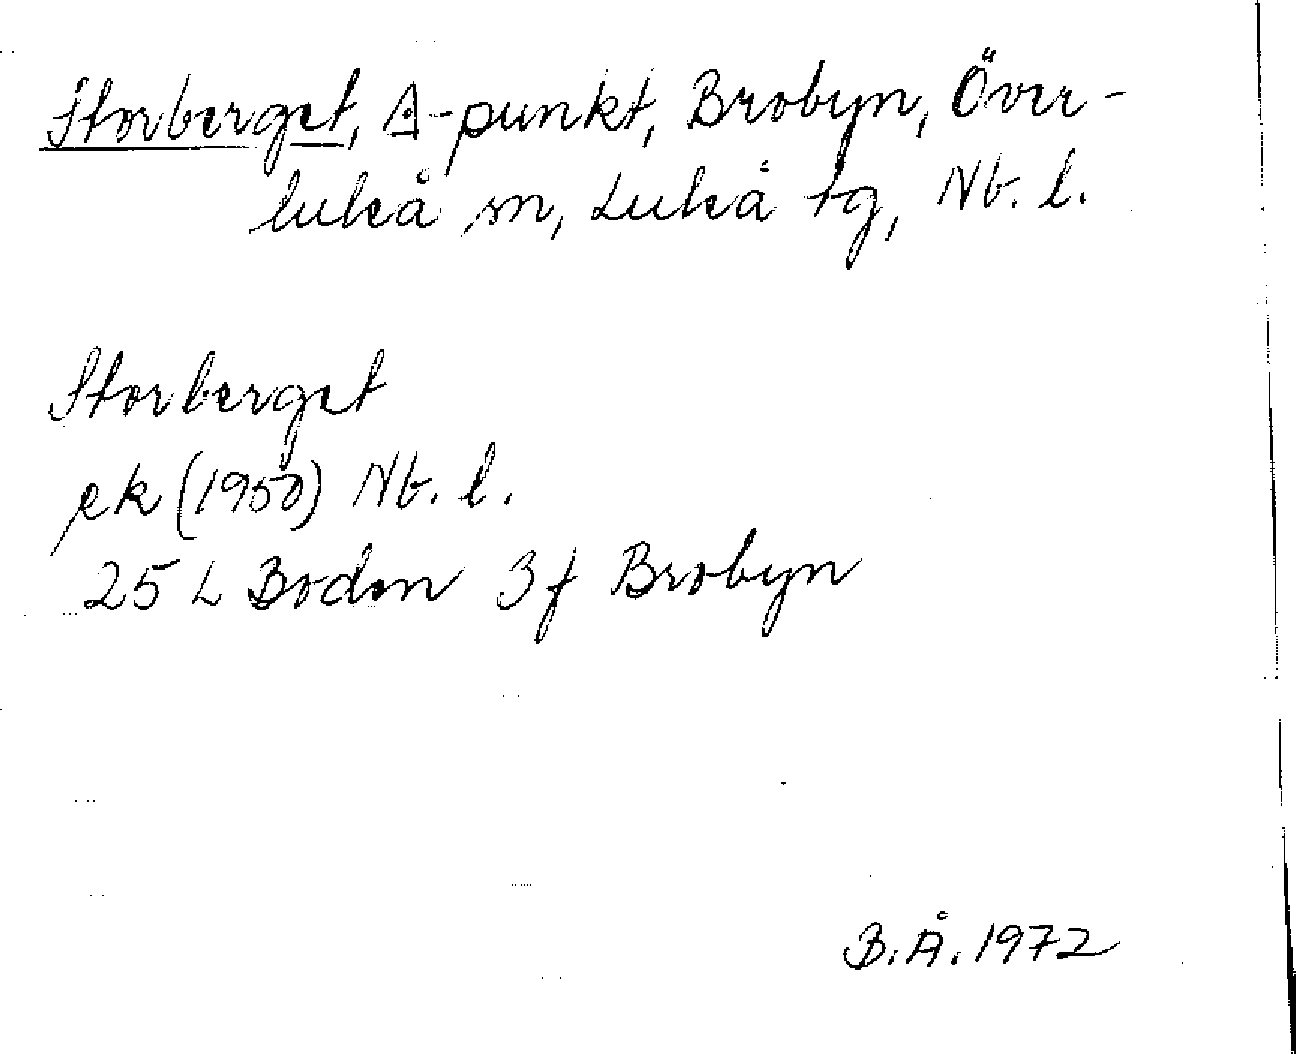 Storberget, Δ-punkt, Brobyn, Över-
luleå sn, Luleå tg, Nb. l.
Storberget
ek (1950) Nb. l.
25 L Boden 3f Brobyn
B.Å. 1972